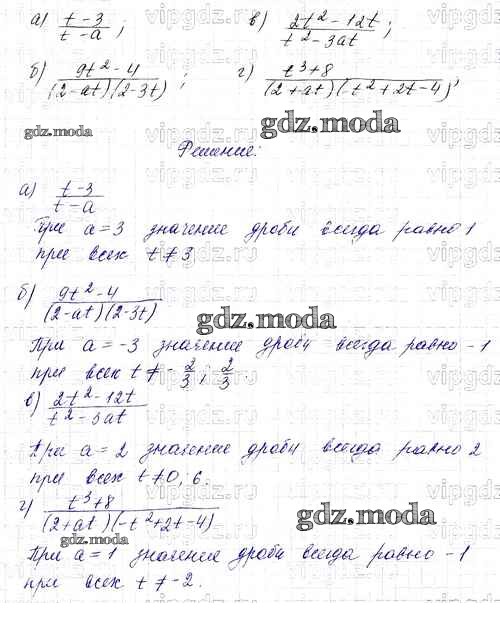 а) t-3/t-a; в) 2t²-12t/t²-3at;
б) 9t²-4/(2-at)(2-3t); г) t³+8/(2+at)(-t²+2t-4),
gdz.moda
gdz.moda
Решение:
а) t-3/t-a
При a=3 значение дроби всегда равно 1
при всех t≠3
б) 9t²-4/(2-at)(2-3t)
gdz.moda
При a=-3 значение дроби всегда равно -1
при всех t≠-2/3; 2/3.
в) 2t²-12t/t²-3at
При a=2 значение дроби всегда равно 2
при всех t≠0; 6.
г) t³+8/(2+at)(-t²+2t-4)
gdz.moda
gdz.moda
При a=1 значение дроби всегда равно -1
при всех t≠-2.